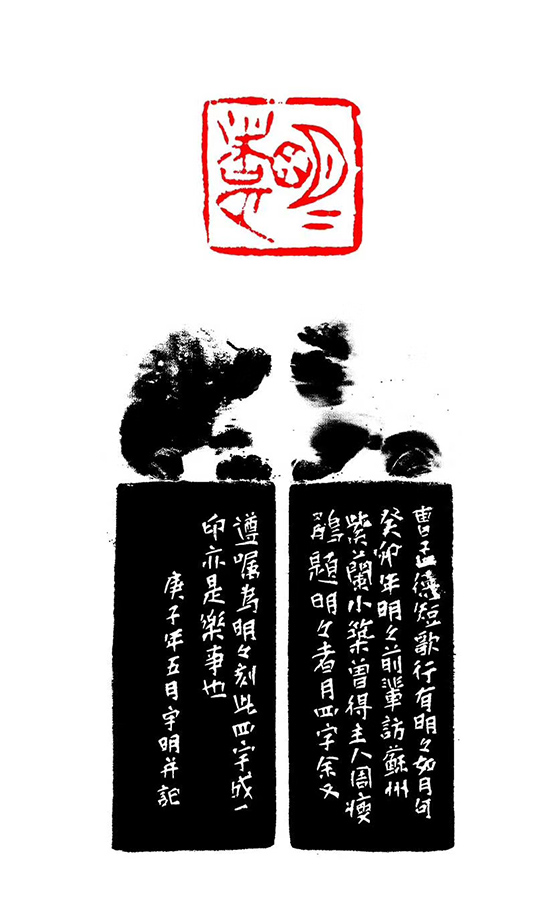 明〻
者月
曹孟德短歌行有明々如月句
癸卯年明々前輩訪蘇州
紫蘭小築曾得主人周瘦
鵑題明々者月四字余又
遵嘱為明々刻此四字成一
印亦是樂事也
庚子年五月宇明并記